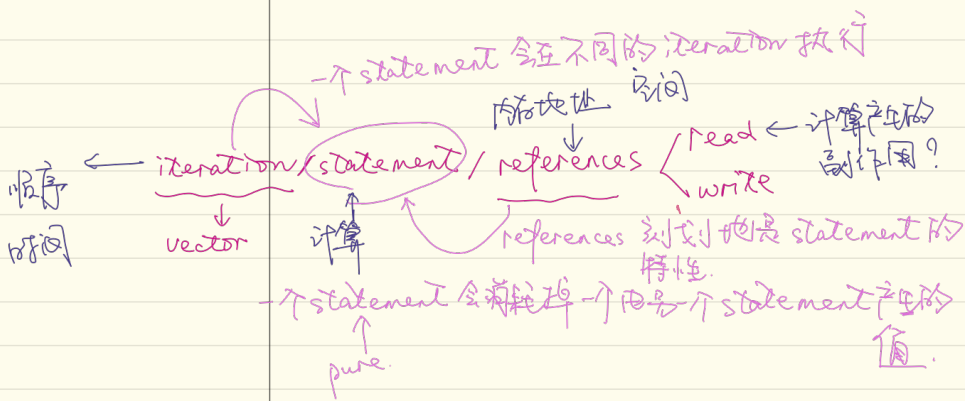 一个statement 会在不同的iteration 执行
内存地址 空间
iteration/statement/references
read ← 计算产生的
副作用?
write
顺序
时间
vector
计算
references 刻划地是statement的
特性.
一个statement 会消耗掉一个由另一个statement产生的
值.
pure.